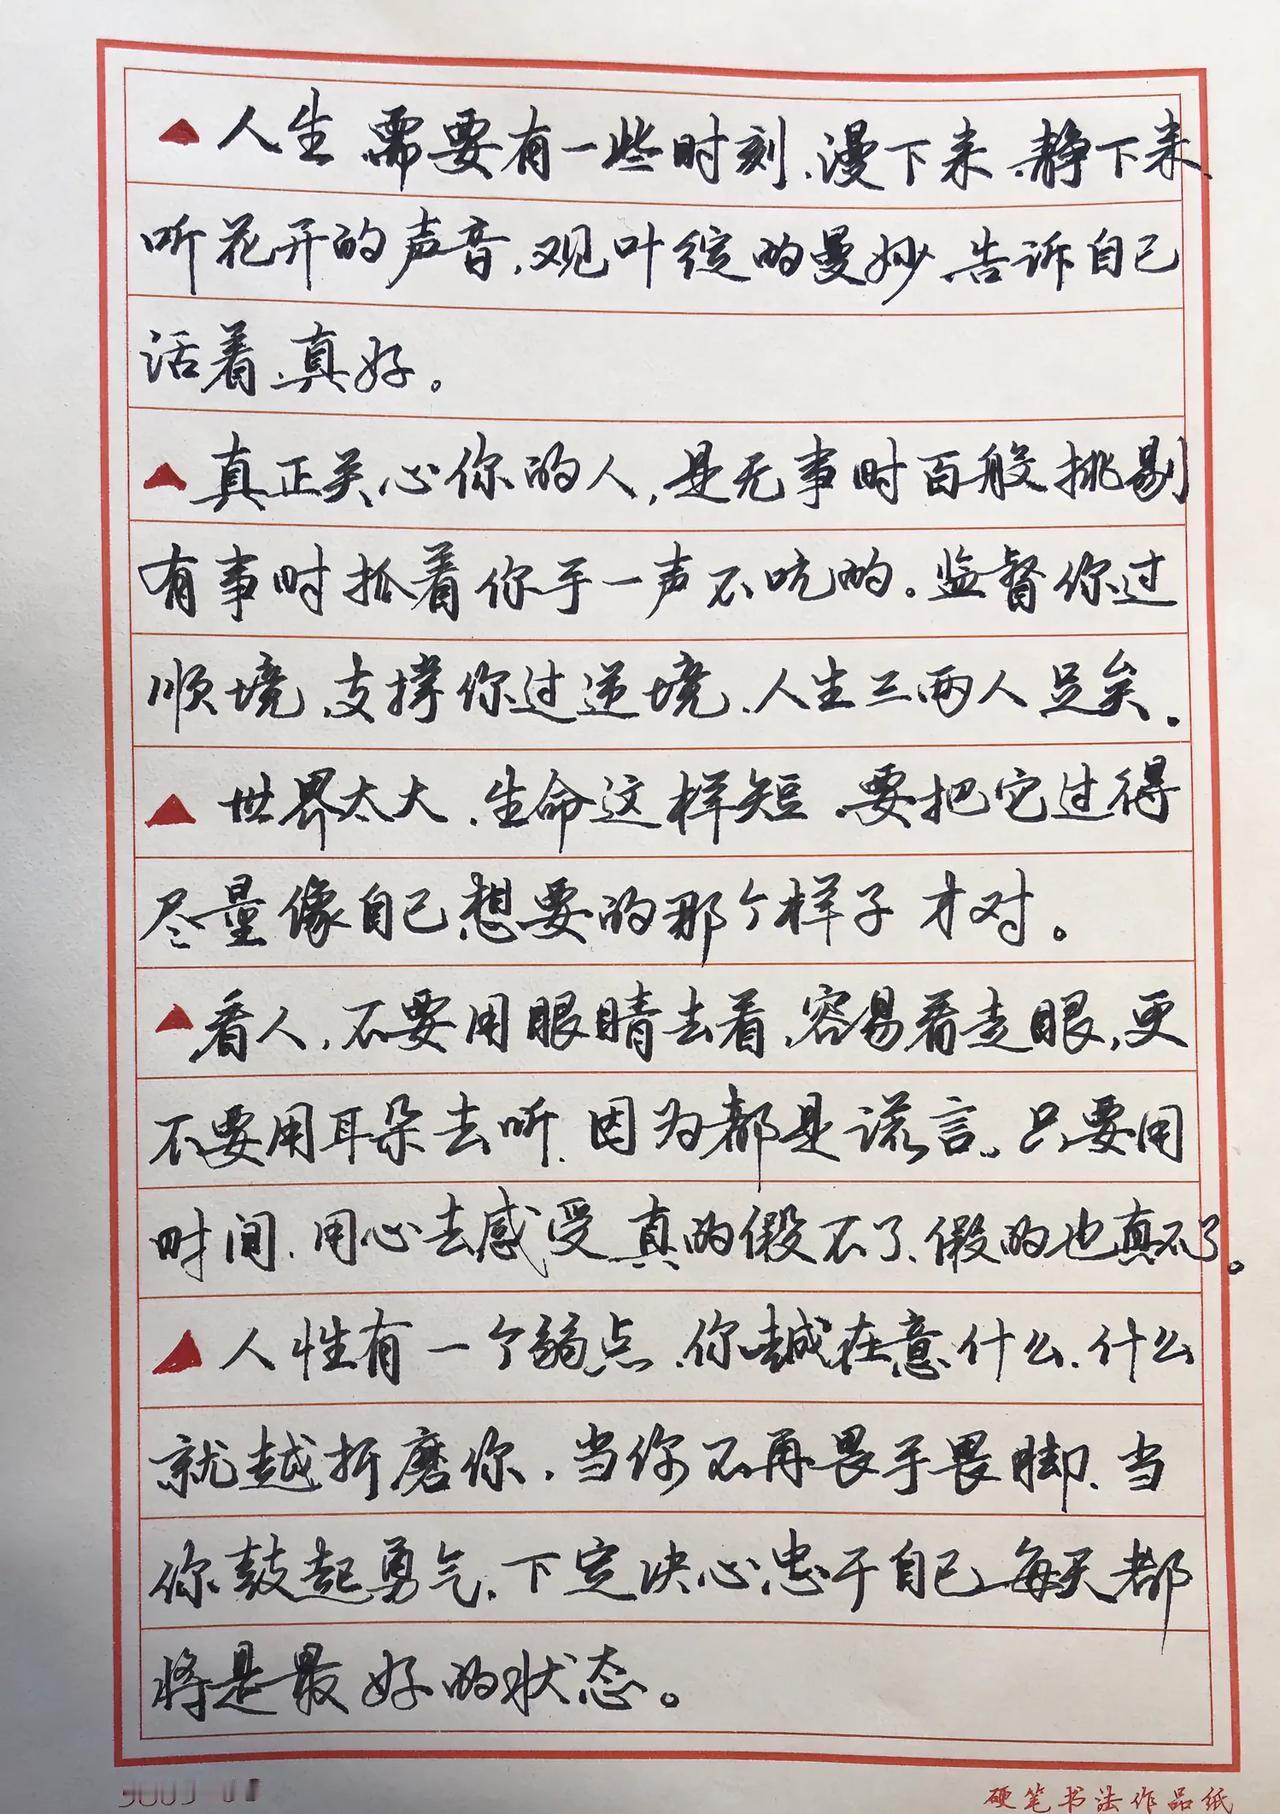 ▲人生需要有一些时刻、漫下来、静下来、
听花开的声音，观叶绽的曼妙、告诉自己
活着、真好。
▲真正关心你的人，是无事时百般挑剔
有事时抓着你手一声不吭的。监督你过
顺境、支撑你过逆境、人生三两人足矣。
▲世界太大、生命这样短、要把它过得
尽量像自己想要的那个样子才对。
▲看人，不要用眼睛去看、容易看走眼，更
不要用耳朵去听、因为都是谎言。只要用
时间、用心去感受、真的假不了、假的也真不了。
▲人性有一个弱点、你越在意什么、什么
就越折磨你、当你不再畏手畏脚、当
你鼓起勇气、下定决心忠于自己、每天都
将是最好的状态。
硬笔书法作品纸